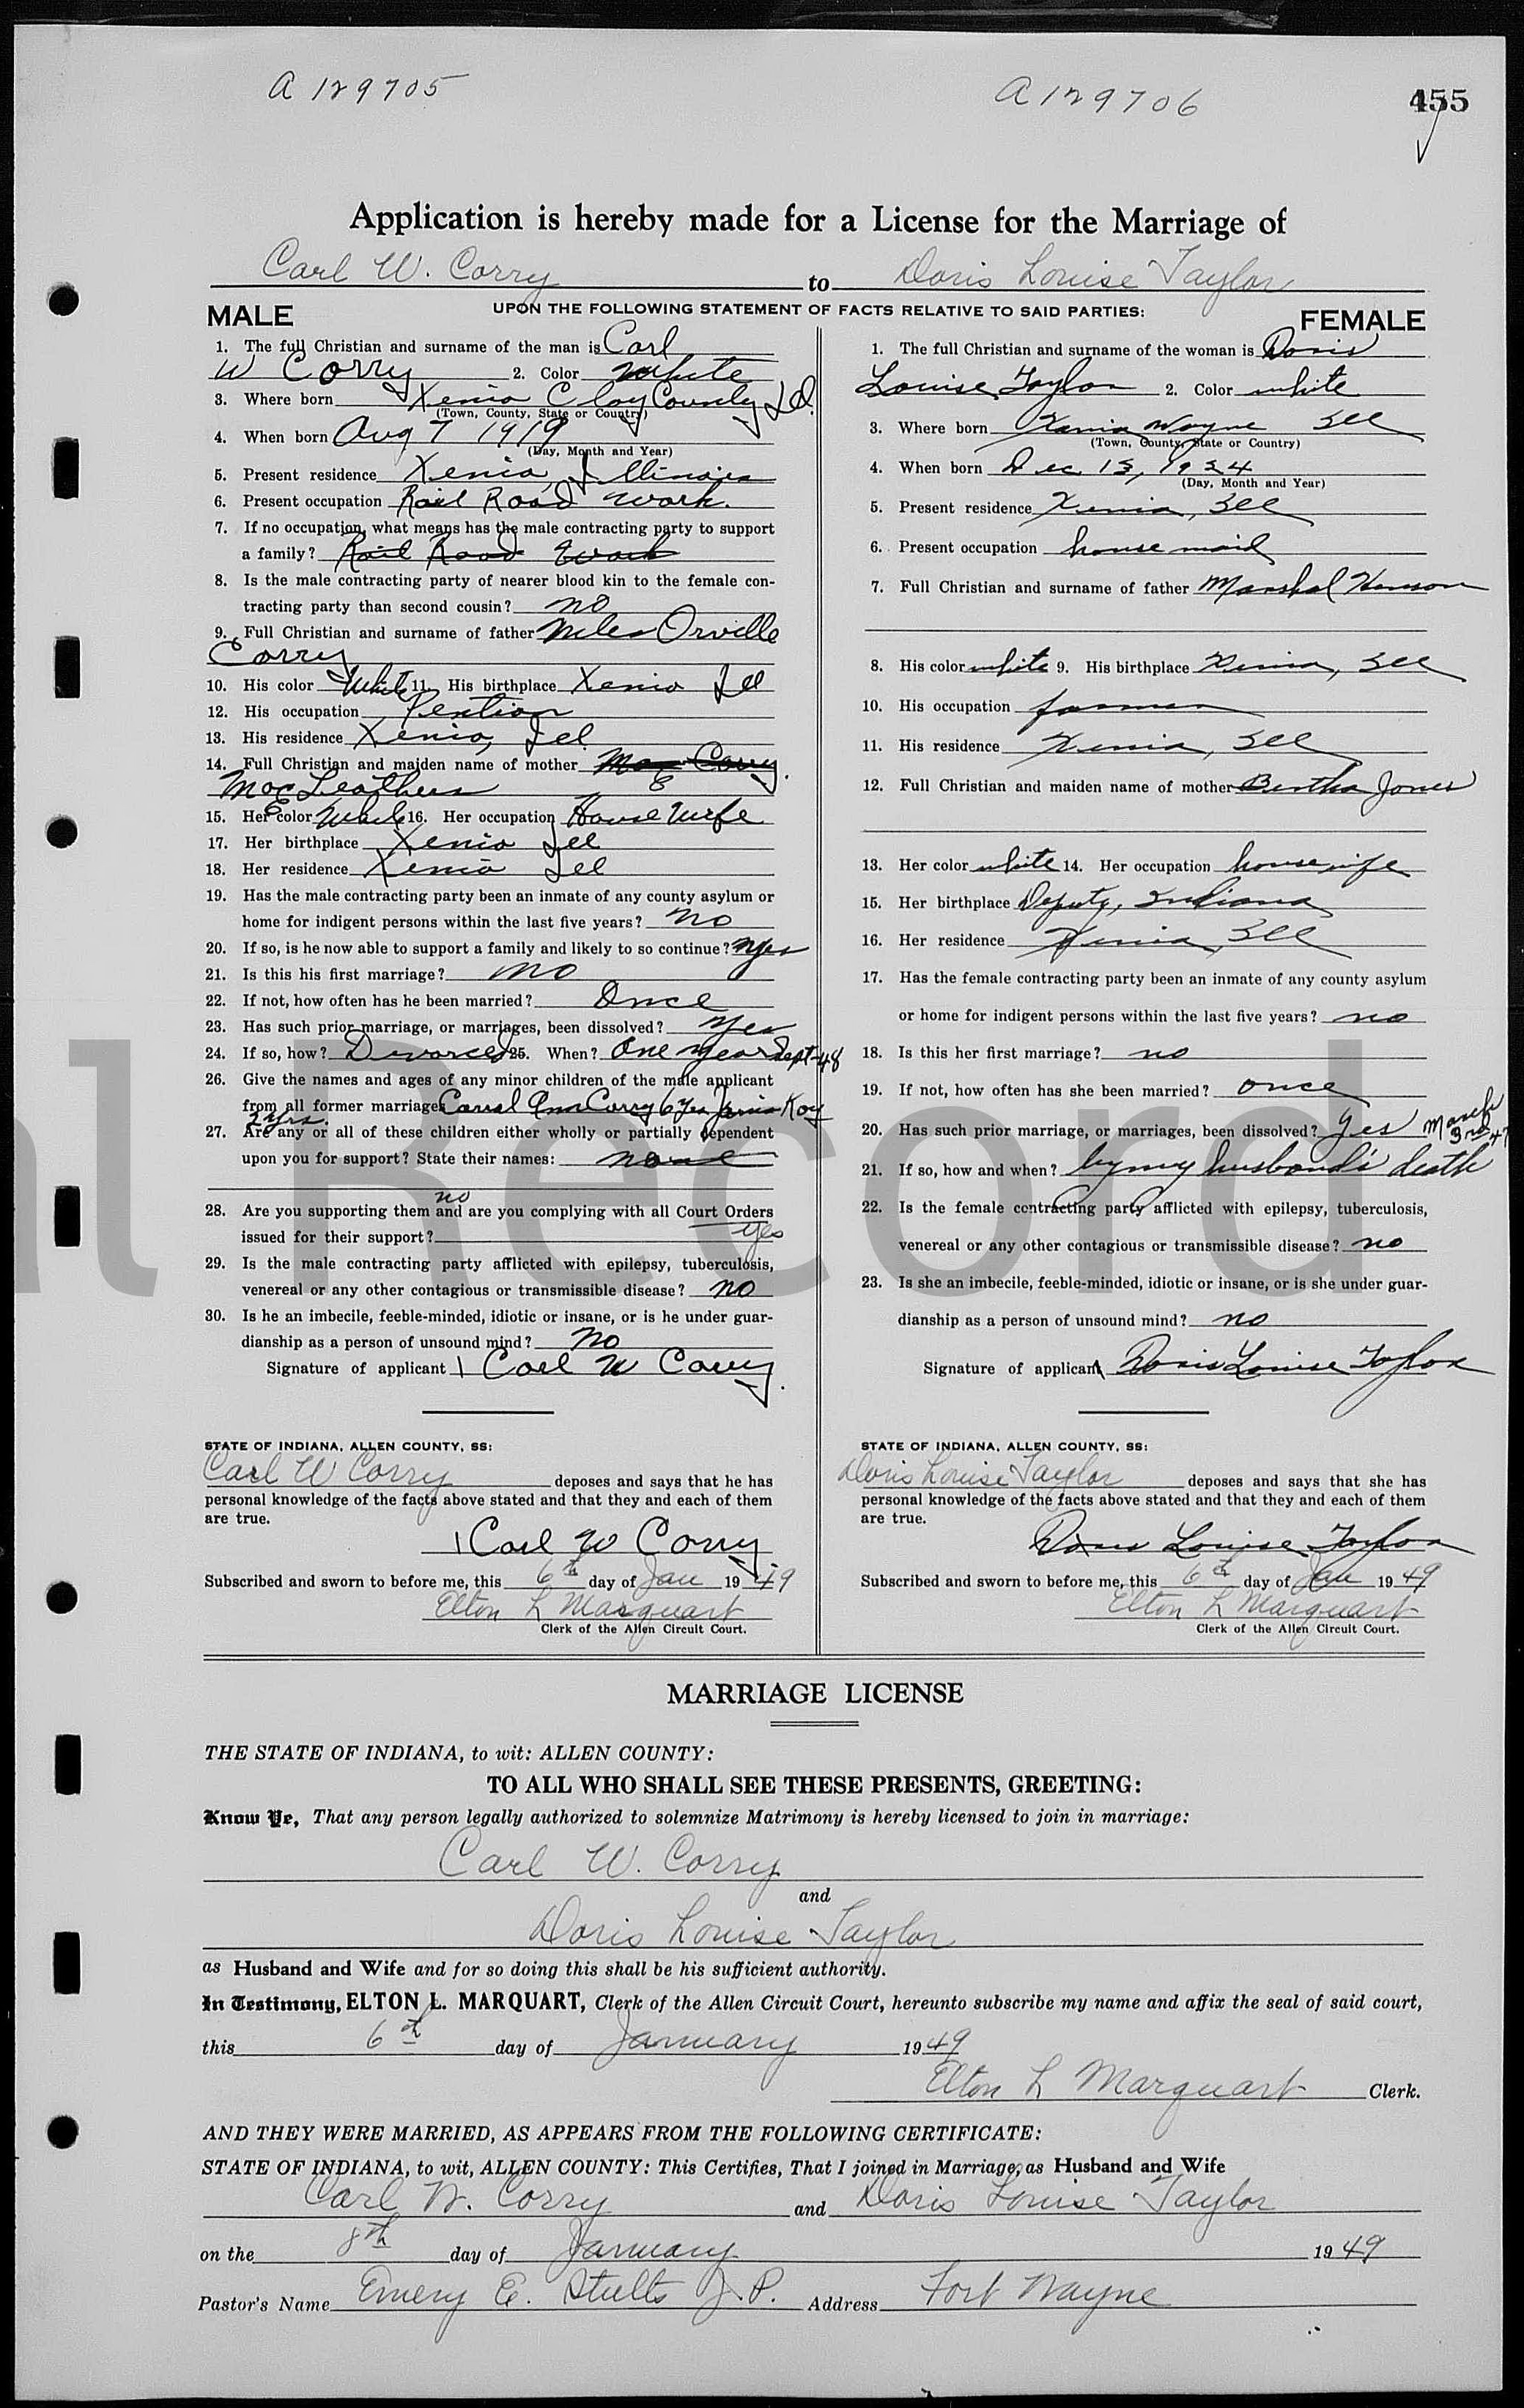 A129705 A129706 455
Application is hereby made for a License for the Marriage of
Carl W. Corry to Doris Louise Taylor
UPON THE FOLLOWING STATEMENT OF FACTS RELATIVE TO SAID PARTIES:
MALE
1. The full Christian and surname of the man is Carl
W Corry 2. Color White
3. Where born Xenia Clay County Ill.
(Town, County, State or Country)
4. When born Aug 7 1919
(Day, Month and Year)
5. Present residence Xenia, Illinois
6. Present occupation Rail Road Work.
7. If no occupation, what means has the male contracting party to support
a family? Rail Road Work
8. Is the male contracting party of nearer blood kin to the female con-
tracting party than second cousin? no
9. Full Christian and surname of father Miles Orville
Corry
10. His color White 11. His birthplace Xenia Ill
12. His occupation Pention
13. His residence Xenia, Ill.
14. Full Christian and maiden name of mother Mae Corry
Mae Leathers
15. Her color White 16. Her occupation House Wife
17. Her birthplace Xenia Ill
18. Her residence Xenia Ill
19. Has the male contracting party been an inmate of any county asylum or
home for indigent persons within the last five years? no
20. If so, is he now able to support a family and likely to so continue? yes
21. Is this his first marriage? no
22. If not, how often has he been married? Once
23. Has such prior marriage, or marriages, been dissolved? yes
24. If so, how? Divorced 25. When? One year Sept-48
26. Give the names and ages of any minor children of the male applicant
from all former marriages Carral Ann Corry 6 yrs Kay
2 yrs.
27. Are any or all of these children either wholly or partially dependent
upon you for support? State their names: none
no
28. Are you supporting them and are you complying with all Court Orders
issued for their support? yes
29. Is the male contracting party afflicted with epilepsy, tuberculosis,
venereal or any other contagious or transmissible disease? no
30. Is he an imbecile, feeble-minded, idiotic or insane, or is he under guar-
dianship as a person of unsound mind? no
Signature of applicant Carl W Corry
STATE OF INDIANA, ALLEN COUNTY, SS:
Carl W Corry deposes and says that he has
personal knowledge of the facts above stated and that they and each of them
are true.
Carl W Corry
Subscribed and sworn to before me, this 6th day of Jan 1949
Elton L Marquart
Clerk of the Allen Circuit Court.
FEMALE
1. The full Christian and surname of the woman is Doris
Louise Taylor 2. Color white
3. Where born Xenia Wayne Ill
(Town, County, State or Country)
4. When born Dec 13, 1924
(Day, Month and Year)
5. Present residence Xenia, Ill
6. Present occupation house maid
7. Full Christian and surname of father Marshal Henson
8. His color white 9. His birthplace Xenia, Ill
10. His occupation farmer
11. His residence Xenia, Ill
12. Full Christian and maiden name of mother Bertha Jones
13. Her color white 14. Her occupation housewife
15. Her birthplace Deputy, Indiana
16. Her residence Xenia, Ill
17. Has the female contracting party been an inmate of any county asylum
or home for indigent persons within the last five years? no
18. Is this her first marriage? no
19. If not, how often has she been married? once
20. Has such prior marriage, or marriages, been dissolved? yes March
3rd 47
21. If so, how and when? by my husband's death
22. Is the female contracting party afflicted with epilepsy, tuberculosis,
venereal or any other contagious or transmissible disease? no
23. Is she an imbecile, feeble-minded, idiotic or insane, or is she under guar-
dianship as a person of unsound mind? no
Signature of applicant Doris Louise Taylor
STATE OF INDIANA, ALLEN COUNTY, SS:
Doris Louise Taylor deposes and says that she has
personal knowledge of the facts above stated and that they and each of them
are true.
Doris Louise Taylor
Subscribed and sworn to before me, this 6th day of Jan 1949
Elton L Marquart
Clerk of the Allen Circuit Court.
l Record
MARRIAGE LICENSE
THE STATE OF INDIANA, to wit: ALLEN COUNTY:
TO ALL WHO SHALL SEE THESE PRESENTS, GREETING:
Know Ye, That any person legally authorized to solemnize Matrimony is hereby licensed to join in marriage:
Carl W. Corry
and
Doris Louise Taylor
as Husband and Wife and for so doing this shall be his sufficient authority.
In Testimony, ELTON L. MARQUART, Clerk of the Allen Circuit Court, hereunto subscribe my name and affix the seal of said court,
this 6th day of January 1949
Elton L Marquart Clerk.
AND THEY WERE MARRIED, AS APPEARS FROM THE FOLLOWING CERTIFICATE:
STATE OF INDIANA, to wit, ALLEN COUNTY: This Certifies, That I joined in Marriage, as Husband and Wife
Carl W. Corry and Doris Louise Taylor
on the 8th day of January 1949
Pastor's Name Emery E. Stults J. P. Address Fort Wayne